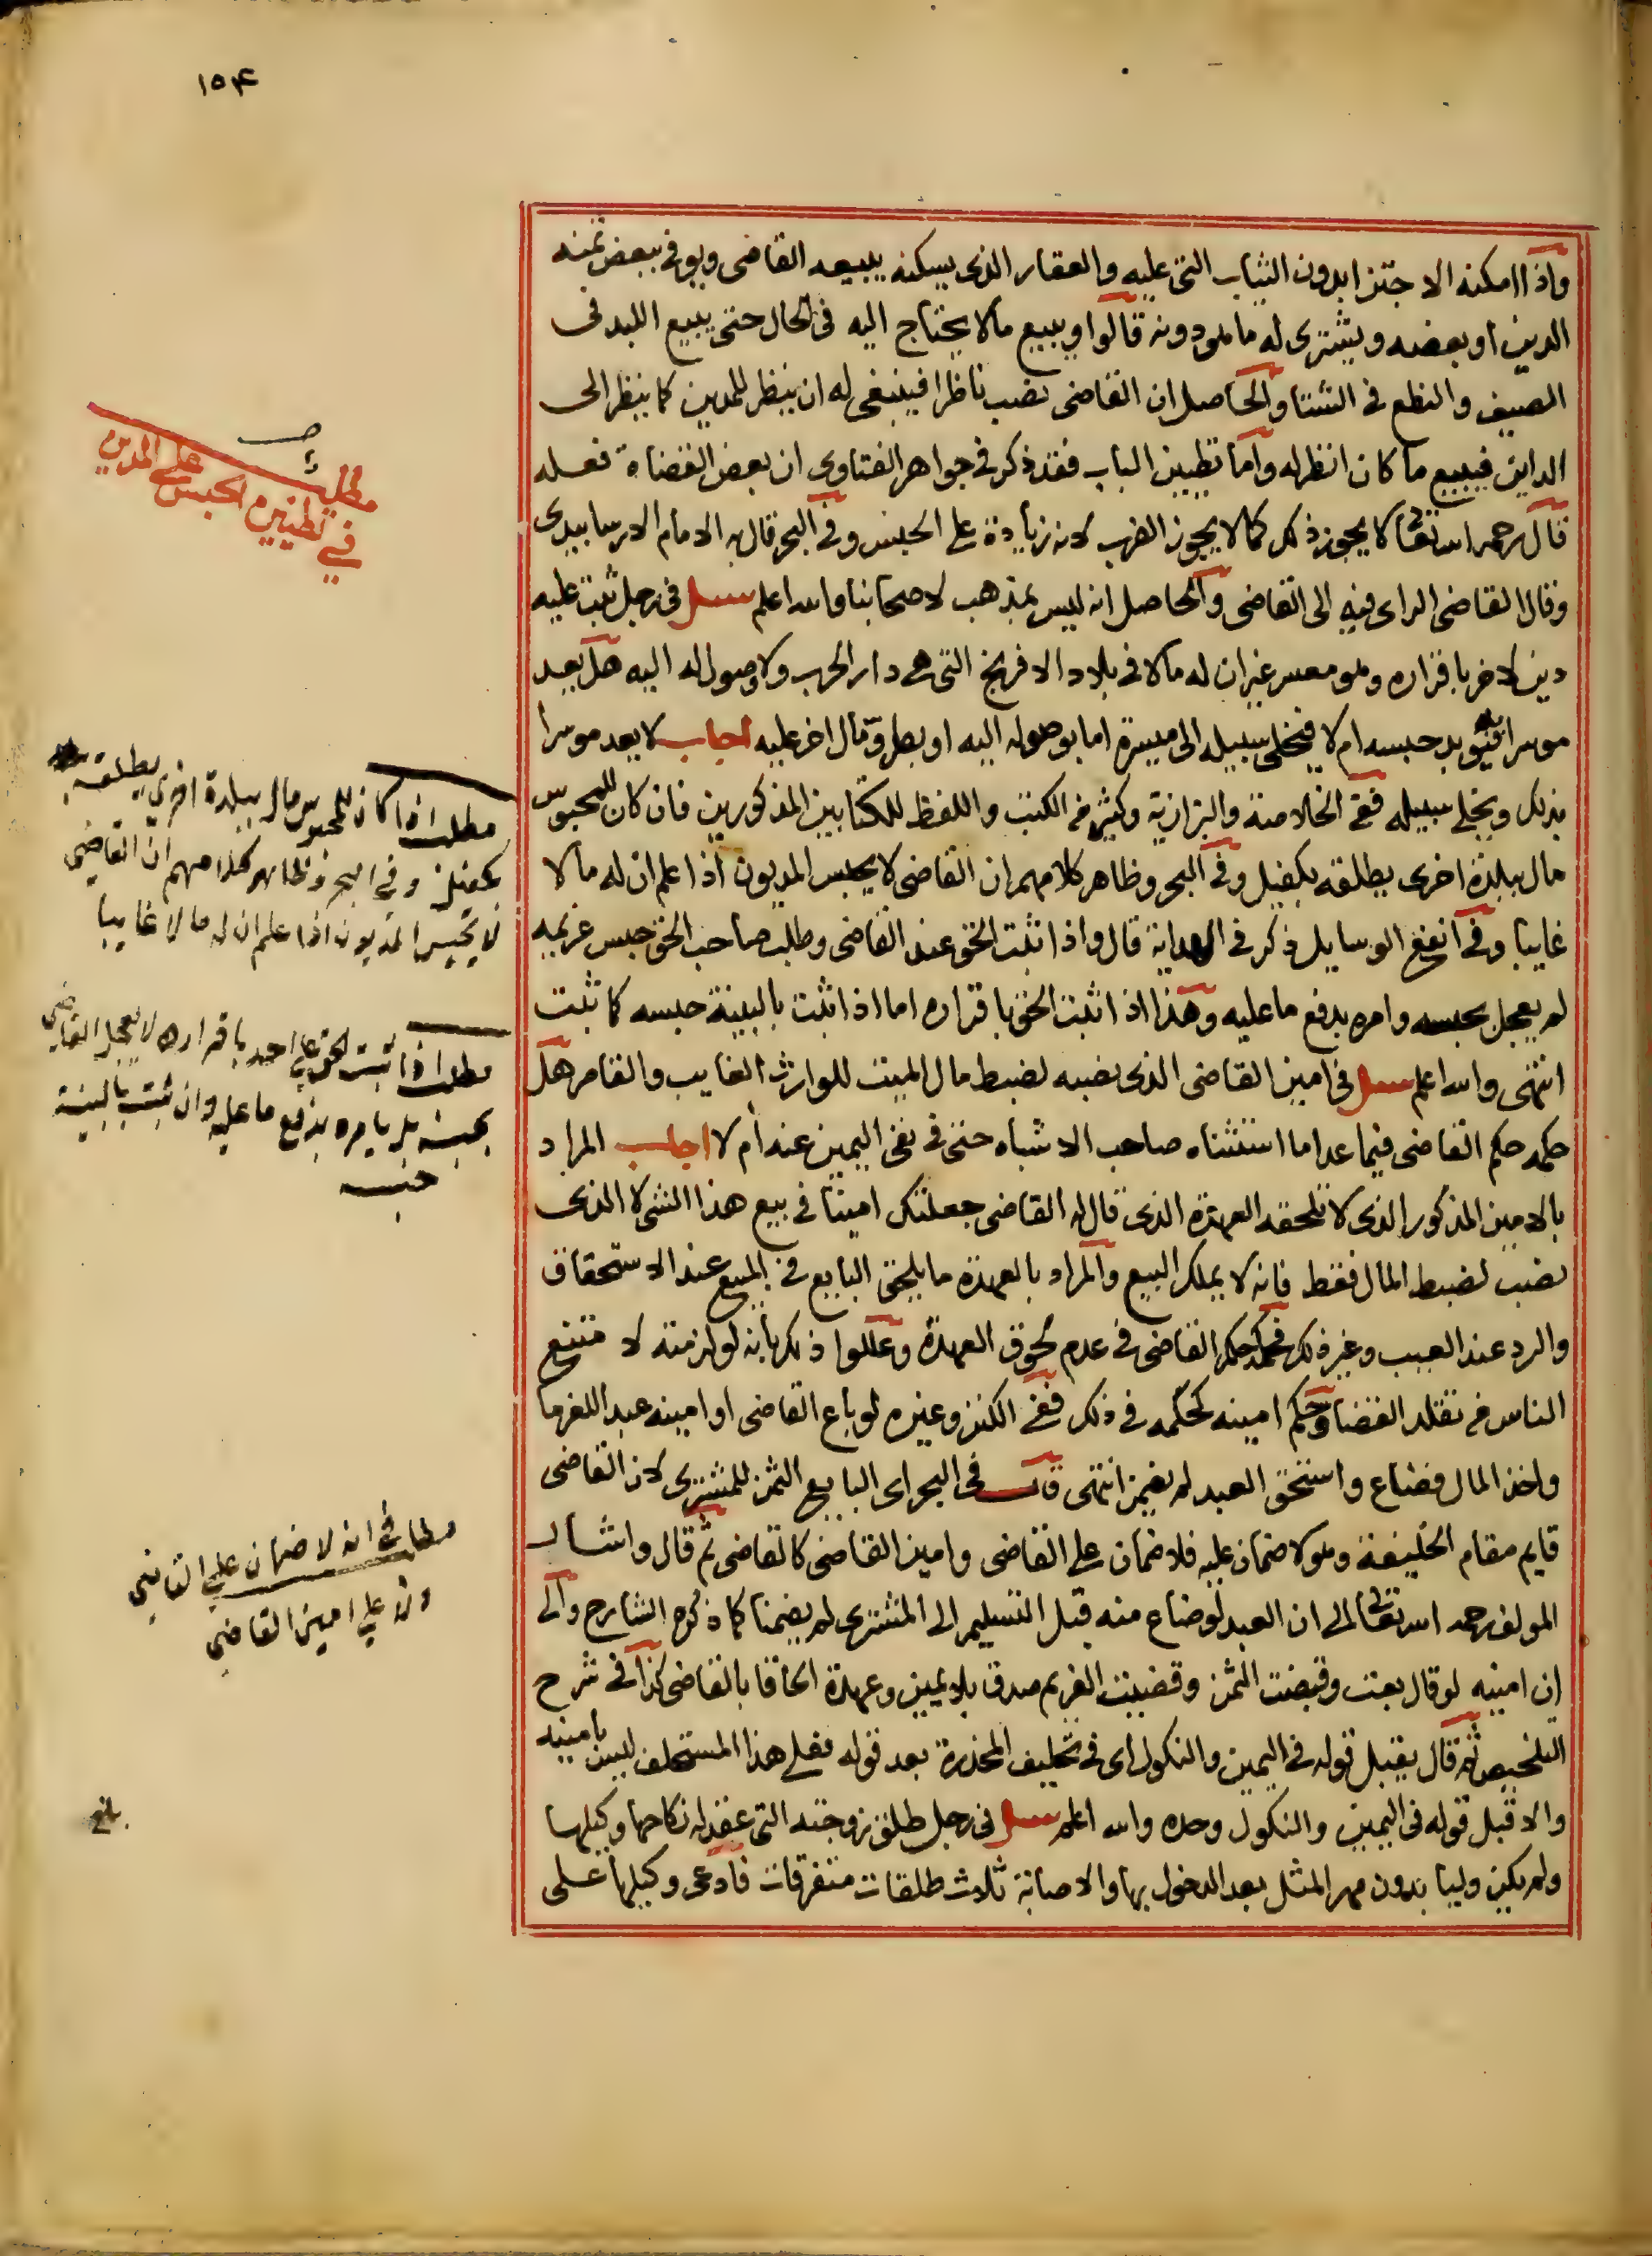 ١٥٤
واذا امكنه الاجتزا بدون الثياب التى عليه والعقار الذى يسكنه يبيعه القاضى ويوفى ببعض ثمنه
الدين او بعضه ويشترى له ما هو دونه قالوا ويبيع مالا يحتاج اليه فى الحال حتى يبيع اللبد فى
الصيف والنطع فى الشتا والحاصل ان القاضى نصب ناظرا فينبغى له ان ينظر للمدين كما ينظر الى
الداين فيبيع ما كان انظر له واما تطيين الباب فقد ذكر فى جواهر الفتاوى ان بعض القضاة فعله
قال رحمه الله تعالى لا يجوز ذلك كما لا يجوز الضرب لانه زيادة على الحبس وفى البحر قال به الامام الارسابيدى
وقال القاضى الراى فيه الى القاضى والحاصل انه ليس بمذهب لاصحابنا والله اعلم سئل فى رجل ثبت عليه
دين لاخر باقراره وهو معسر غير ان له مالا فى بلاد الافرنج التى هى دار الحرب ولا وصول له اليه هل يعد
موسرا فيوبد حبسه ام لا فيخلى سبيله الى ميسرة اما بوصوله اليه او بطروّ مال اخر عليه اجاب لا يعد موسرا
بذلك ويخلى سبيله ففى الخلاصة والبزازية وكثير من الكتب واللفظ للكتابين المذكورين فان كان للمحبوس
مال ببلدة اخرى يطلقه بكفيل وفى البحر وظاهر كلامهم ان القاضى لا يحبس المديون اذا علم ان له مالا
غايبا وفى انفع الوسايل ذكر فى الهداية قال واذا ثبت الحق عند القاضى وطلب صاحب الحق حبس غريمه
لم يعجل بحبسه وامره بدفع ما عليه وهذا اذا ثبت الحق باقراره اما اذا ثبت بالبينة حبسه كما ثبت
انتهى والله اعلم سئل فى امين القاضى الذى نصبه لضبط مال الميت للوارث الغايب والقاصر هل
حكمه حكم القاضى فيما عدا ما استثناه صاحب الاشباه حتى فى نفى اليمين عنه ام لا اجاب المراد
بالامين المذكور الذى لا تلحقه العهدة الذى قال له القاضى جعلتك امينا فى بيع هذا الشى لا الذى
نصب لضبط المال فقط فانه لا يملك البيع والمراد بالعهدة ما يلحق البايع فى المبيع عند الاستحقاق
والرد عند العيب وغير ذلك فحكمه حكم القاضى فى عدم لحوق العهدة وعللوا ذلك بانه لو لزمته لا متنع
الناس من تقلد القضا وحكم امينه كحكمه فى ذلك ففى الكنز وغيره لو باع القاضى او امينه عبد اللغرما
واخذ المال فضاع واستحق العبد لم يضمن انتهى قال فى البحر اى البايع الثمن للمشترى لان القاضى
قايم مقام الخليفة وهو لا ضمان عليه فلا ضمان على القاضى وامين القاضى كالقاضى ثم قال واشار
المولف رحمه الله تعالى الى ان العبد لو ضاع منه قبل التسليم الى المشترى لم يضمنا كما ذكره الشارح والى
ان امينه لو قال بعت وقبضت الثمن وقضيت الغريم صدق بلا يمين وعهدة الحاقا بالقاضى كذا فى شرح
التلخيص ثم قال يقبل قوله فى اليمين والنكول اى فى تحليف المخدرة بعد قوله فعلى هذا المستحلف ليس بامينه
والا قبل قوله فى اليمين والنكول وحده والله اعلم سئل فى رجل طلق زوجته التى عقد له نكاحها وكيلها
ولم يكن وليا بدون مهر المثل بعد الدخول بها والاصابة ثلاث طلقات متفرقات فادعى وكيلها على
مطلب
فى تطيين الحبس على المديون
مطلب اذا كان للمحبوس مال ببلدة اخرى يطلقه
بكفيل وفى البحر وظاهر كلامهم ان القاضى
لا يحبس المديون اذا علم ان له مالا غايبا
مطلب اذا ثبت الحق على احد باقراره لا يعجل القاضى
بحبسه بل يامره بدفع ما عليه وان ثبت بالبينة
حبسه
مطلب فى انه لا ضمان على القاضى
ولا على امين القاضى
بلغ